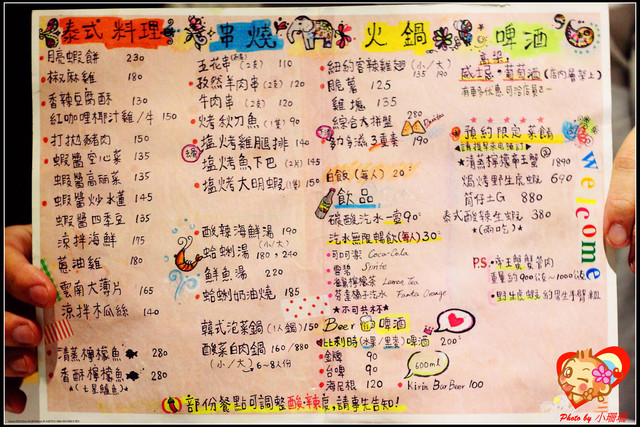 泰式料理
月亮蝦餅 230
椒麻雞 180
香辣豆腐酥 130
紅咖哩椰汁雞/牛 150
打拋豬肉 150
蝦醬空心菜 135
蝦醬高麗菜 135
蝦醬炒水蓮 145
蝦醬四季豆 135
涼拌海鮮 175
蔥油雞 180
雲南大薄片 165
涼拌木瓜絲 140
清蒸檸檬魚 280
香酥檸檬魚 280
*(七星鱸魚)*
串燒
五花串(2支) 110
孜然羊肉串(2支) 120
牛肉串(2支) 120
烤秋刀魚(1隻) 90
塩烤雞腿排 140
塩烤魚下巴(2片) 145
塩烤大明蝦(1隻) 150
酸辣海鮮湯 190
(小/大)
蛤蜊湯 180, 240
鮮魚湯 220
蛤蜊奶油燒 185
韓式泡菜鍋(1人鍋) 150
酸菜白肉鍋 160/880
(小/大) 6~8人份
火鍋
紐約客辣雞翅 (小/大) 135 190
脆薯 125
雞塊 135
綜合大拼盤 280
多力多滋3重奏 190
Doritos
白飯(每人) 20
飲品
碳酸汽水一壺90
汽水無限暢飲(每人)30
可口可樂 Coca-Cola
雪碧 Sprite
雀巢檸檬茶 Lemon Tea
芬達橘子汽水 Fanta Orange
*不可共杯*
Beer 啤酒
比利時(水果/黑麥)啤酒 200
金牌 90
台啤 90
海尼根 120
600ml
Kirin Bar Beer 100
啤酒
高粱,
威士忌·葡萄酒(店內層架上)
有再多優惠可洽店員~
預約限定菜餚
請提早來電預訂
*清蒸檸檬帝王蟹 1890
焗烤野生虎蝦 690
筒仔土G 880
泰式酸辣生蝦 380
*(兩吃)*
P.S. 帝王蟹蟹管肉
重量約900公克~1000公克
野生虎蝦約男生手臂粗
Welcome
部份餐點可調整酸、辣度,請事先告知!
Photo by 小珊珊